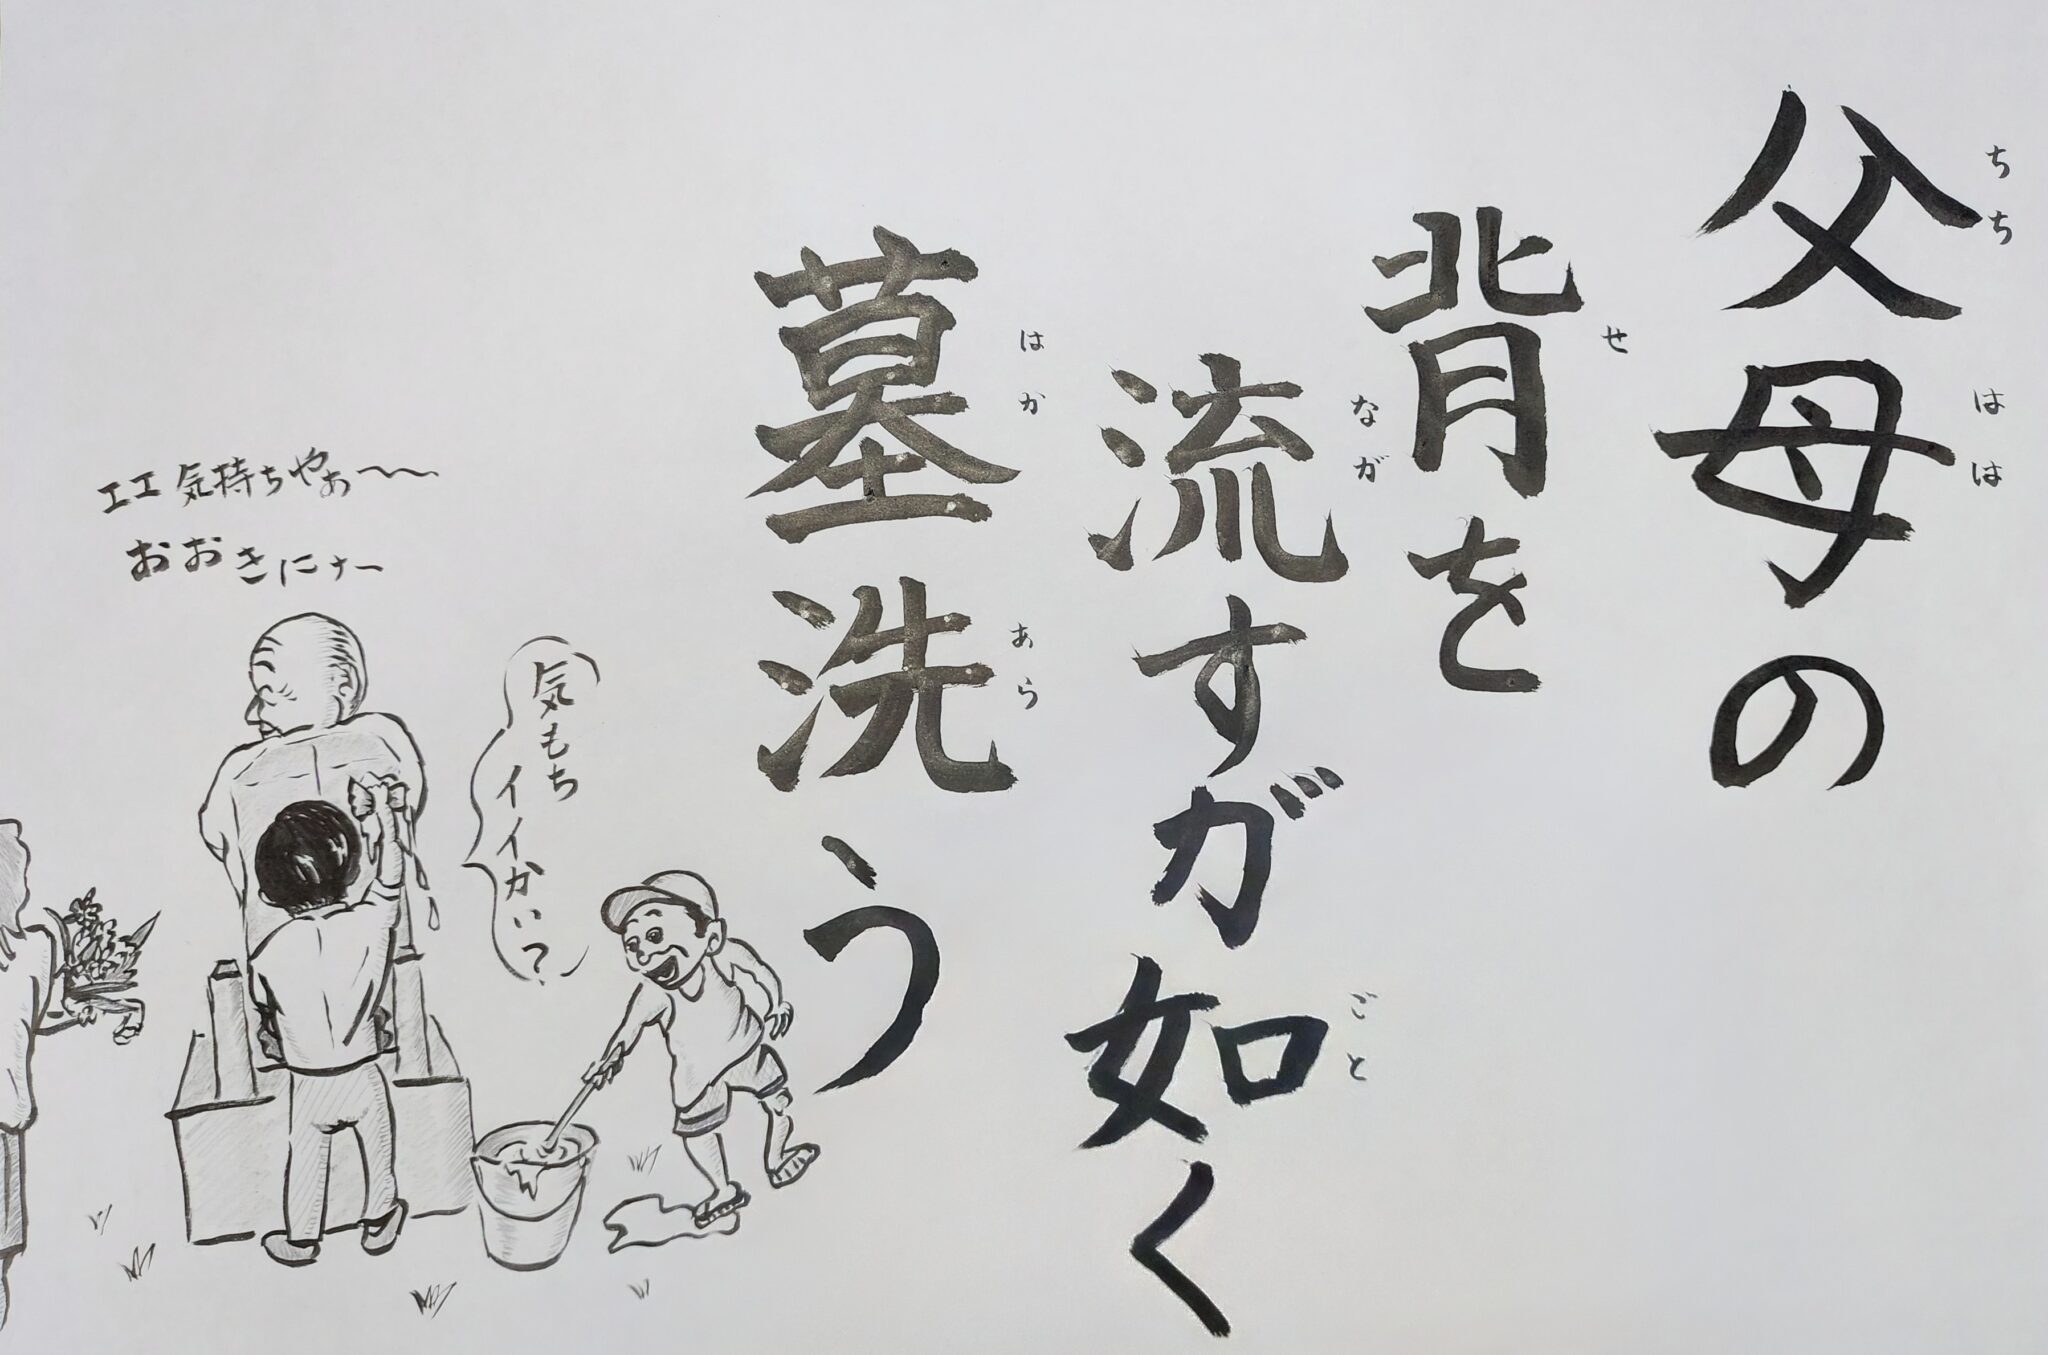 父母の
ちち
はは
背を
せ
流すが如く
なが
ごと
墓洗う
はか
あら
気もち
イイかい?
エエ気持ちやぁ〜〜
おおきにナー